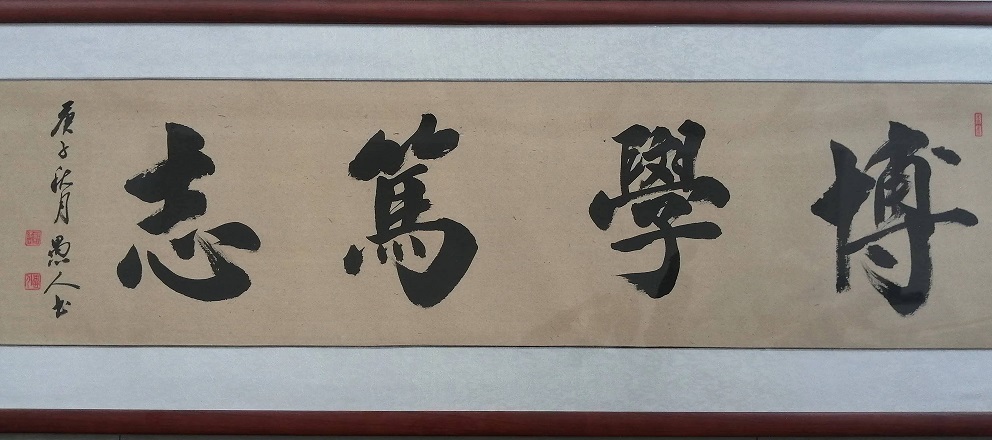 博學篤志
庚子秋月 愚人书